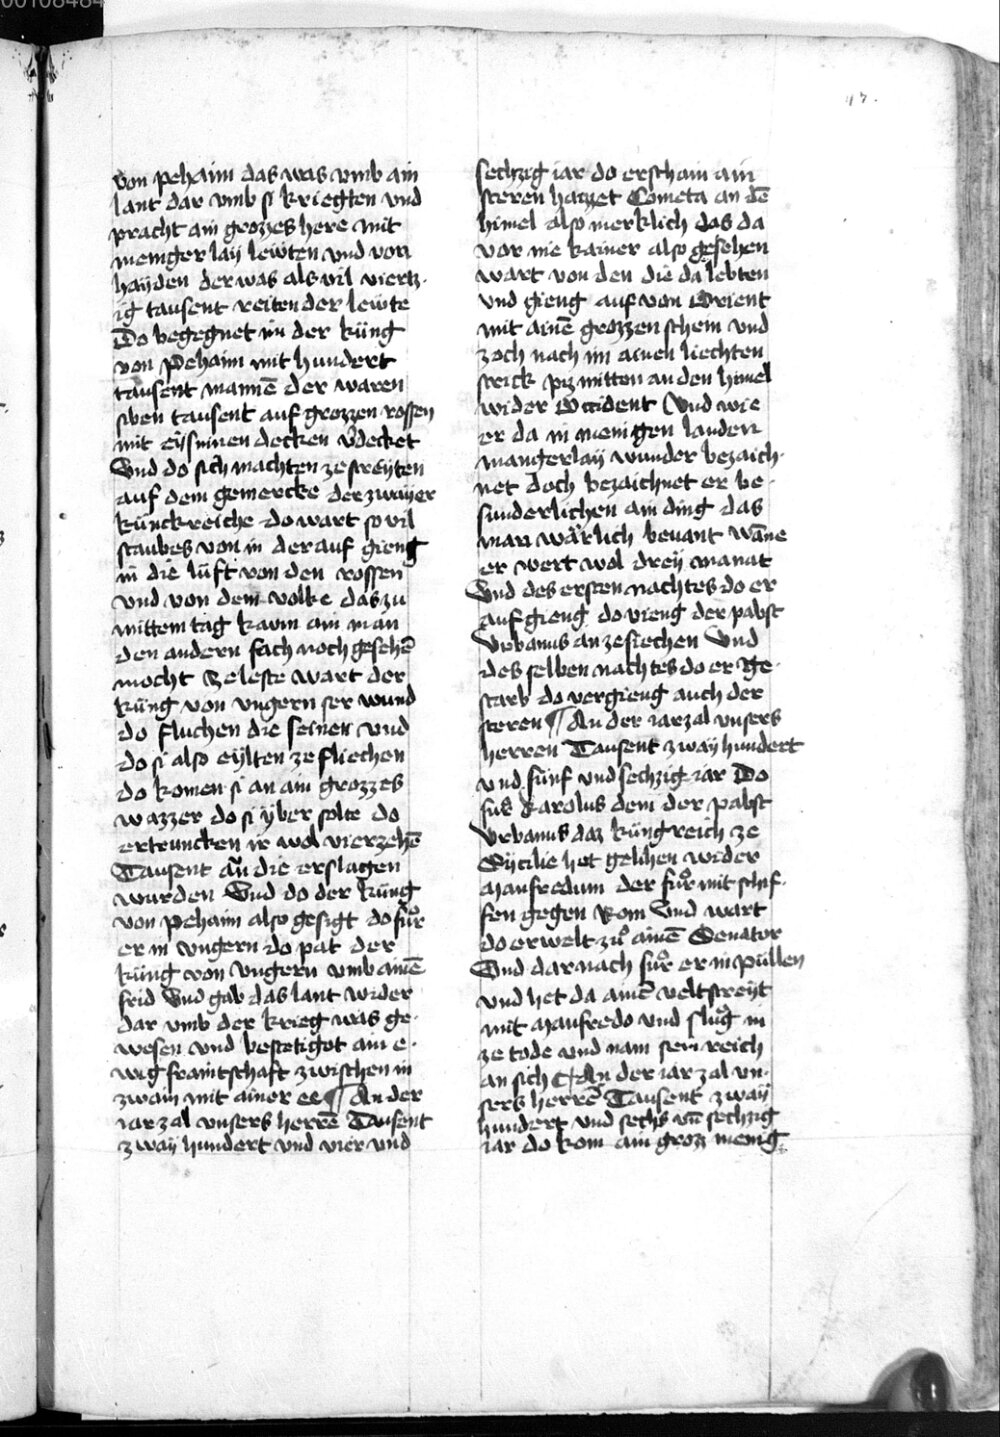 00108484
47.
von pehaim das was vmb ain
lant dar vmb si kriegten vnd
pracht ain grozzes here mit
meniger lay lewten vnd von
hayden der was als vil viertz-
ig tausent reitender lewte
Do begegnet im der küng
von Pehaim mit hundert
tausent mannē der waren
siben tausent auf grozzen rossen
mit eysninen decken v̄decket
Vnd do sich machten ze streyten
auf dem gemercke der zwayer
künckreiche do wart so vil
staubes von in der auf gieng
in die lüft von den rossen
vnd von dem volke das zu
mittem tag kaum ain man
den andern sach noch gesehē
mocht Ze leste wart der
küng von vngern ser wund
do fluchen die seinen vnd
do si also eylten ze fliechen
do komen si an ain grozzes
wazzer do si yber solte do
ertruncken ir wol vierzehē
Tausent an die erslagen
wurden Vnd do der küng
von Pehaim also gesigt do fůr
er in vngern do pat der
küng von Vngern vmb ainē
frid Vnd gab das lant wider
dar vmb der krieg was ge-
wesen vnd bestetigot ain e-
wig fraintschaft zwischen in
zwain mit ainer ee ¶ An der
iarzal vnsers herrē Tausent
zway hundert vnd vier vnd
sechzig iar do erschain ain
steren hayzet Cometa an dē
himel also merklich das da
vor nie kainer also gesehen
wart von den die da lebten
vnd gieng auf von Orient
mit ainē grozzen schein vnd
zoch nach im ainen liechten
strick piz mitten an den himel
wider Occident Vnd wie
er da in menigen landen
mangerlay wunder bezaich-
net doch bezaichnet er be-
sunderlichen ain ding das
man wärlich bevant wāne
er wert wol drey manat
Vnd des ersten nachtes do er
auf gieng do vieng der pabst
Vrbanus an ze siechen Vnd
des selben nachtes do er ge-
starb do vergieng auch der
steren ¶ An der iarzal vnsers
herren Tausent zway hundert
vnd fünf vnd sechzig iar Do
fůr Karolus dem der pabst
Vrbanus daz küngreich ze
Sycilie het gelihen wider
Manfredum der fůr mit schif-
fen gegen Rom Vnd wart
do erwelt zů ainē Senator
Vnd dar nach fůr er in püllen
vnd het da ainē veltstreyt
mit Manfredo vnd slůg in
ze tode vnd nam sein reich
an sich ¶ An der iarzal vn-
sers herrē Tausent zway
hundert vnd sechs vn̄ sechzig
iar do kom ain groz menig